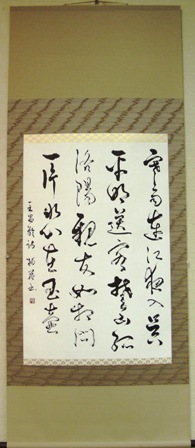 寒雨連江夜入呉
平明送客楚山孤
洛陽親友如相問
一片氷心在玉壺
王昌齢詩